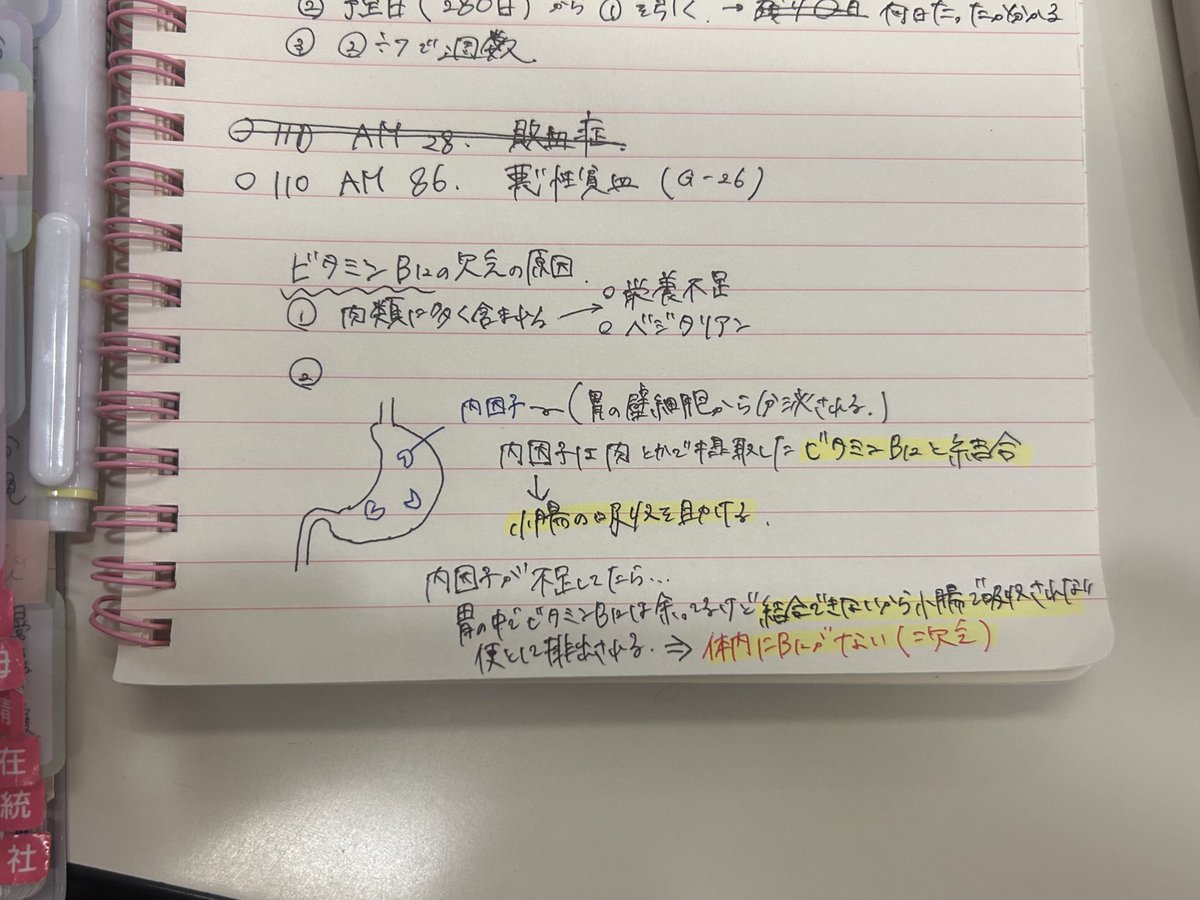 ② 予定日(280日)から①を引く.→ 何日たったか分かる
③ ②÷7で週数
○ 110 AM 28. 敗血症.
○ 110 AM 86. 悪性貧血 (G-26)
ビタミンB12の欠乏の原因.
① 肉類に多く含まれる → ○栄養不足
○ベジタリアン
②
内因子 〜 (胃の壁細胞から分泌される.)
内因子は肉とかで摂取したビタミンB12と結合
↓
小腸の吸収を助ける.
内因子が不足してたら…
胃の中でビタミンB12は余ってるけど結合できないから小腸で吸収されな
便として排出される. ⇒ 体内にB12がない(=欠乏)
母
精
在
統
社